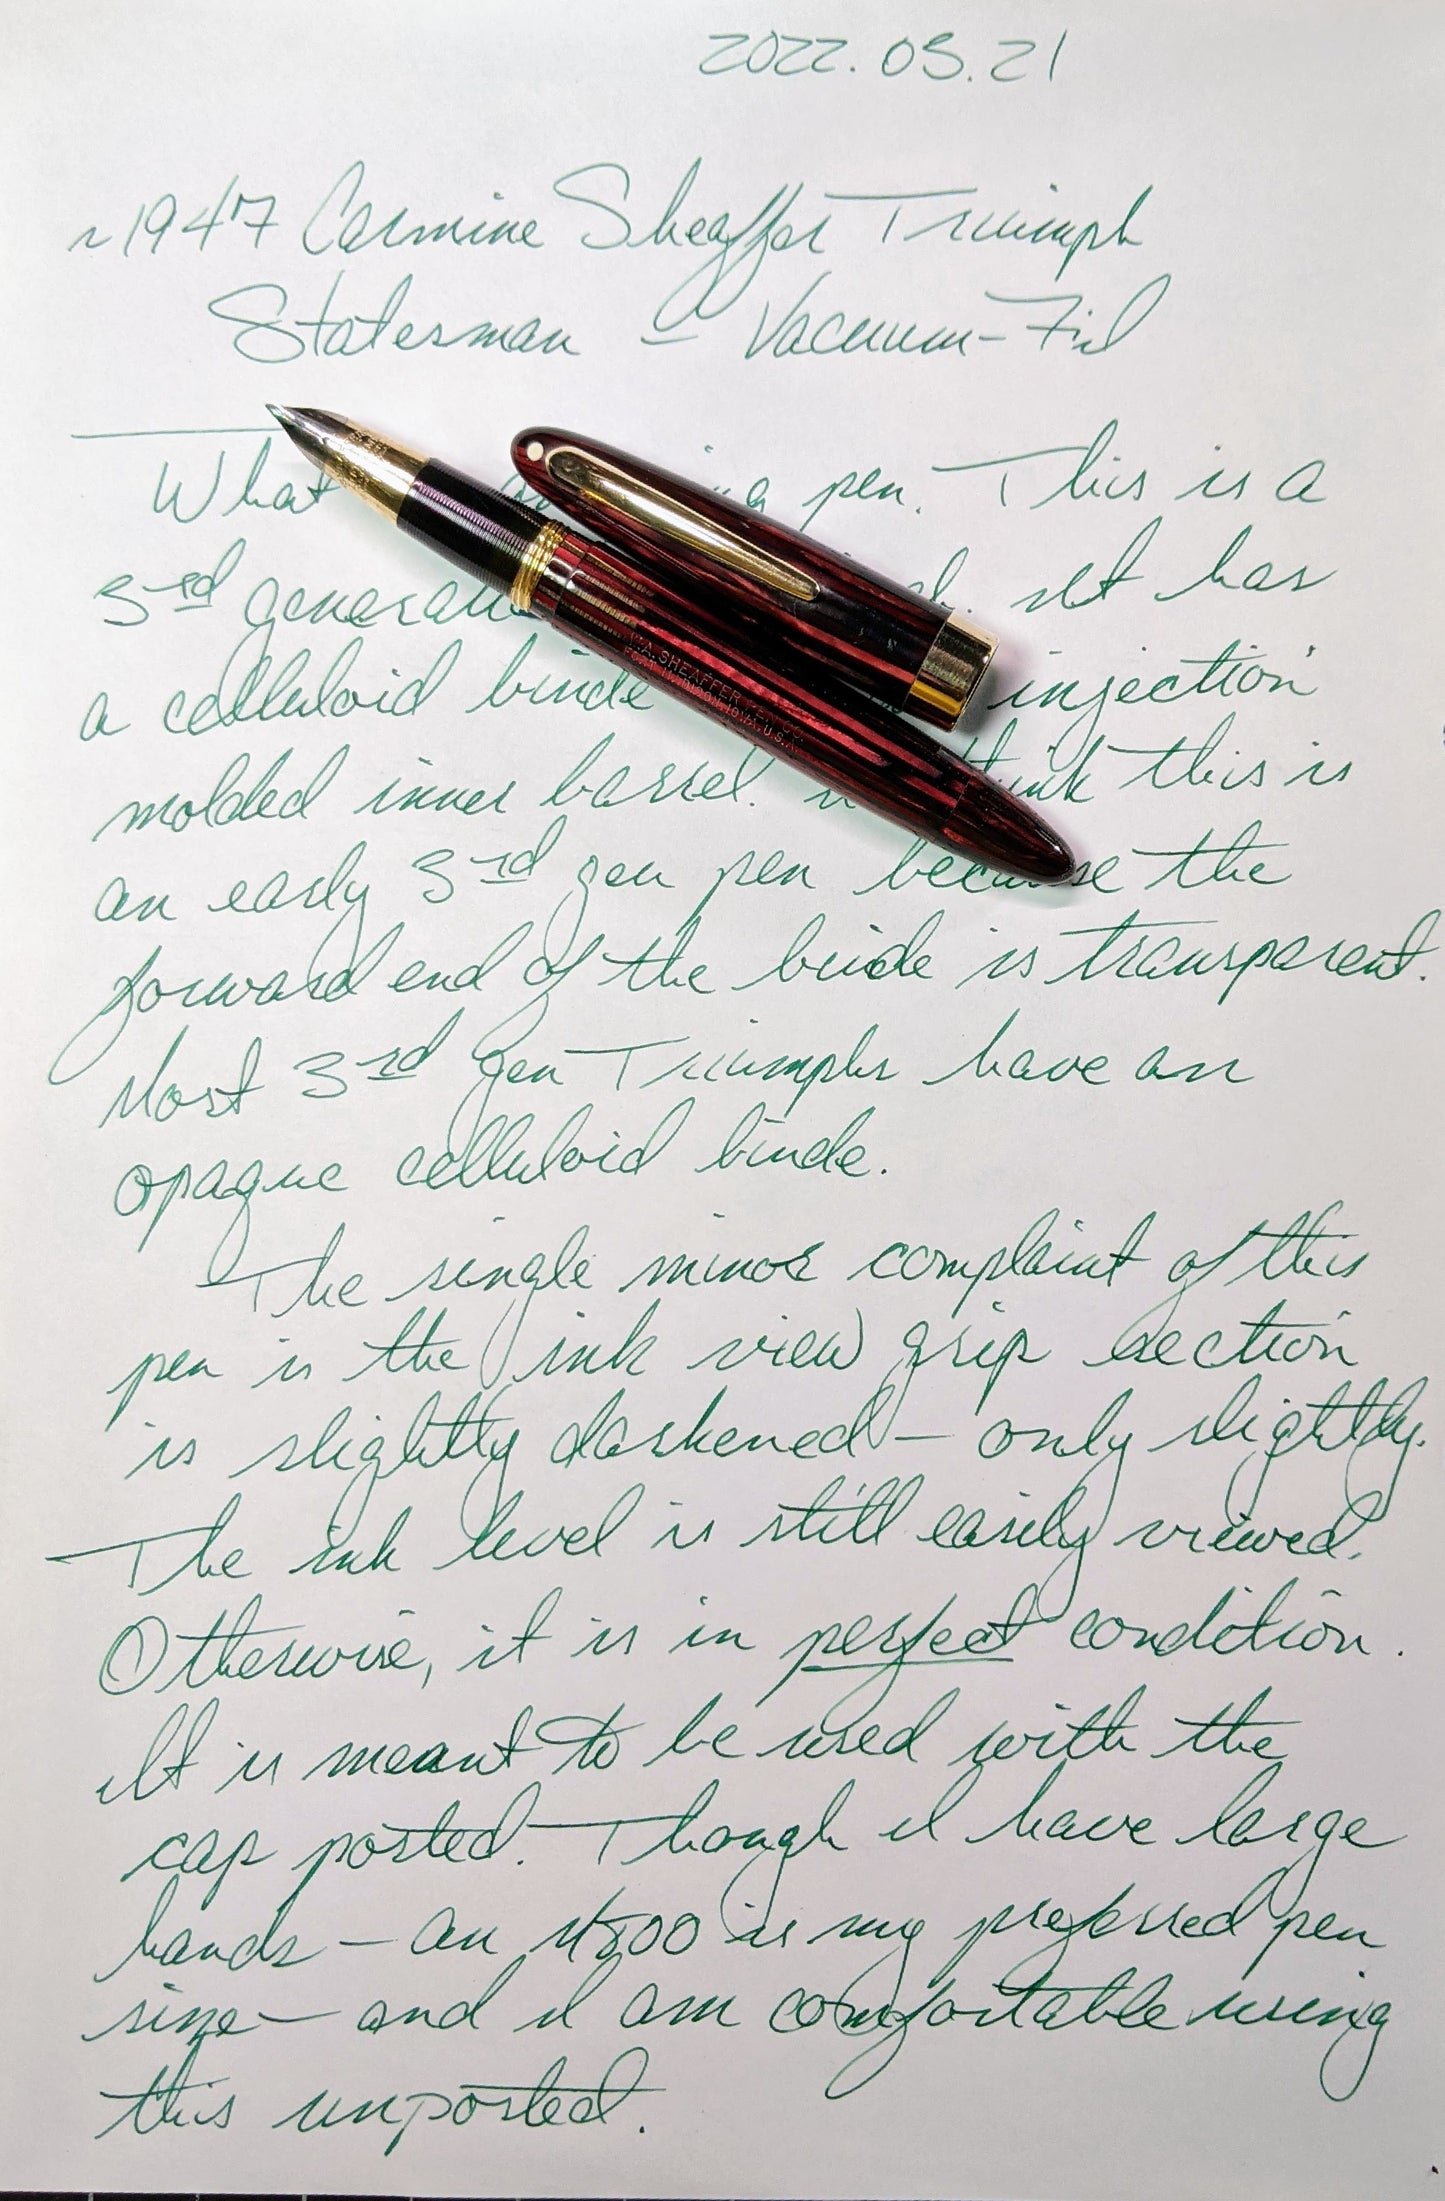 2022.05.21
~1947 Carmine Sheaffer Triumph
Statesman – Vacuum-Fil
What a pen. This is a
3rd It has
a celluloid binde injection
molded inner barrel. think this is
an early 3rd gen pen because the
forward end of the binde is transparent.
Most 3rd gen Triumphs have an
opaque celluloid binde.
The single minor complaint of this
pen is the ink view grip section
is slightly darkened – only slightly.
The ink level is still easily viewed.
Otherwise, it is in perfect condition.
It is meant to be used with the
cap posted. Though I have large
hands – an M800 is my preferred pen
size – and I am comfortable using
this unposted.
W.A. SHEAFFER PEN CO.
FORT MADISON, IOWA, U.S.A.